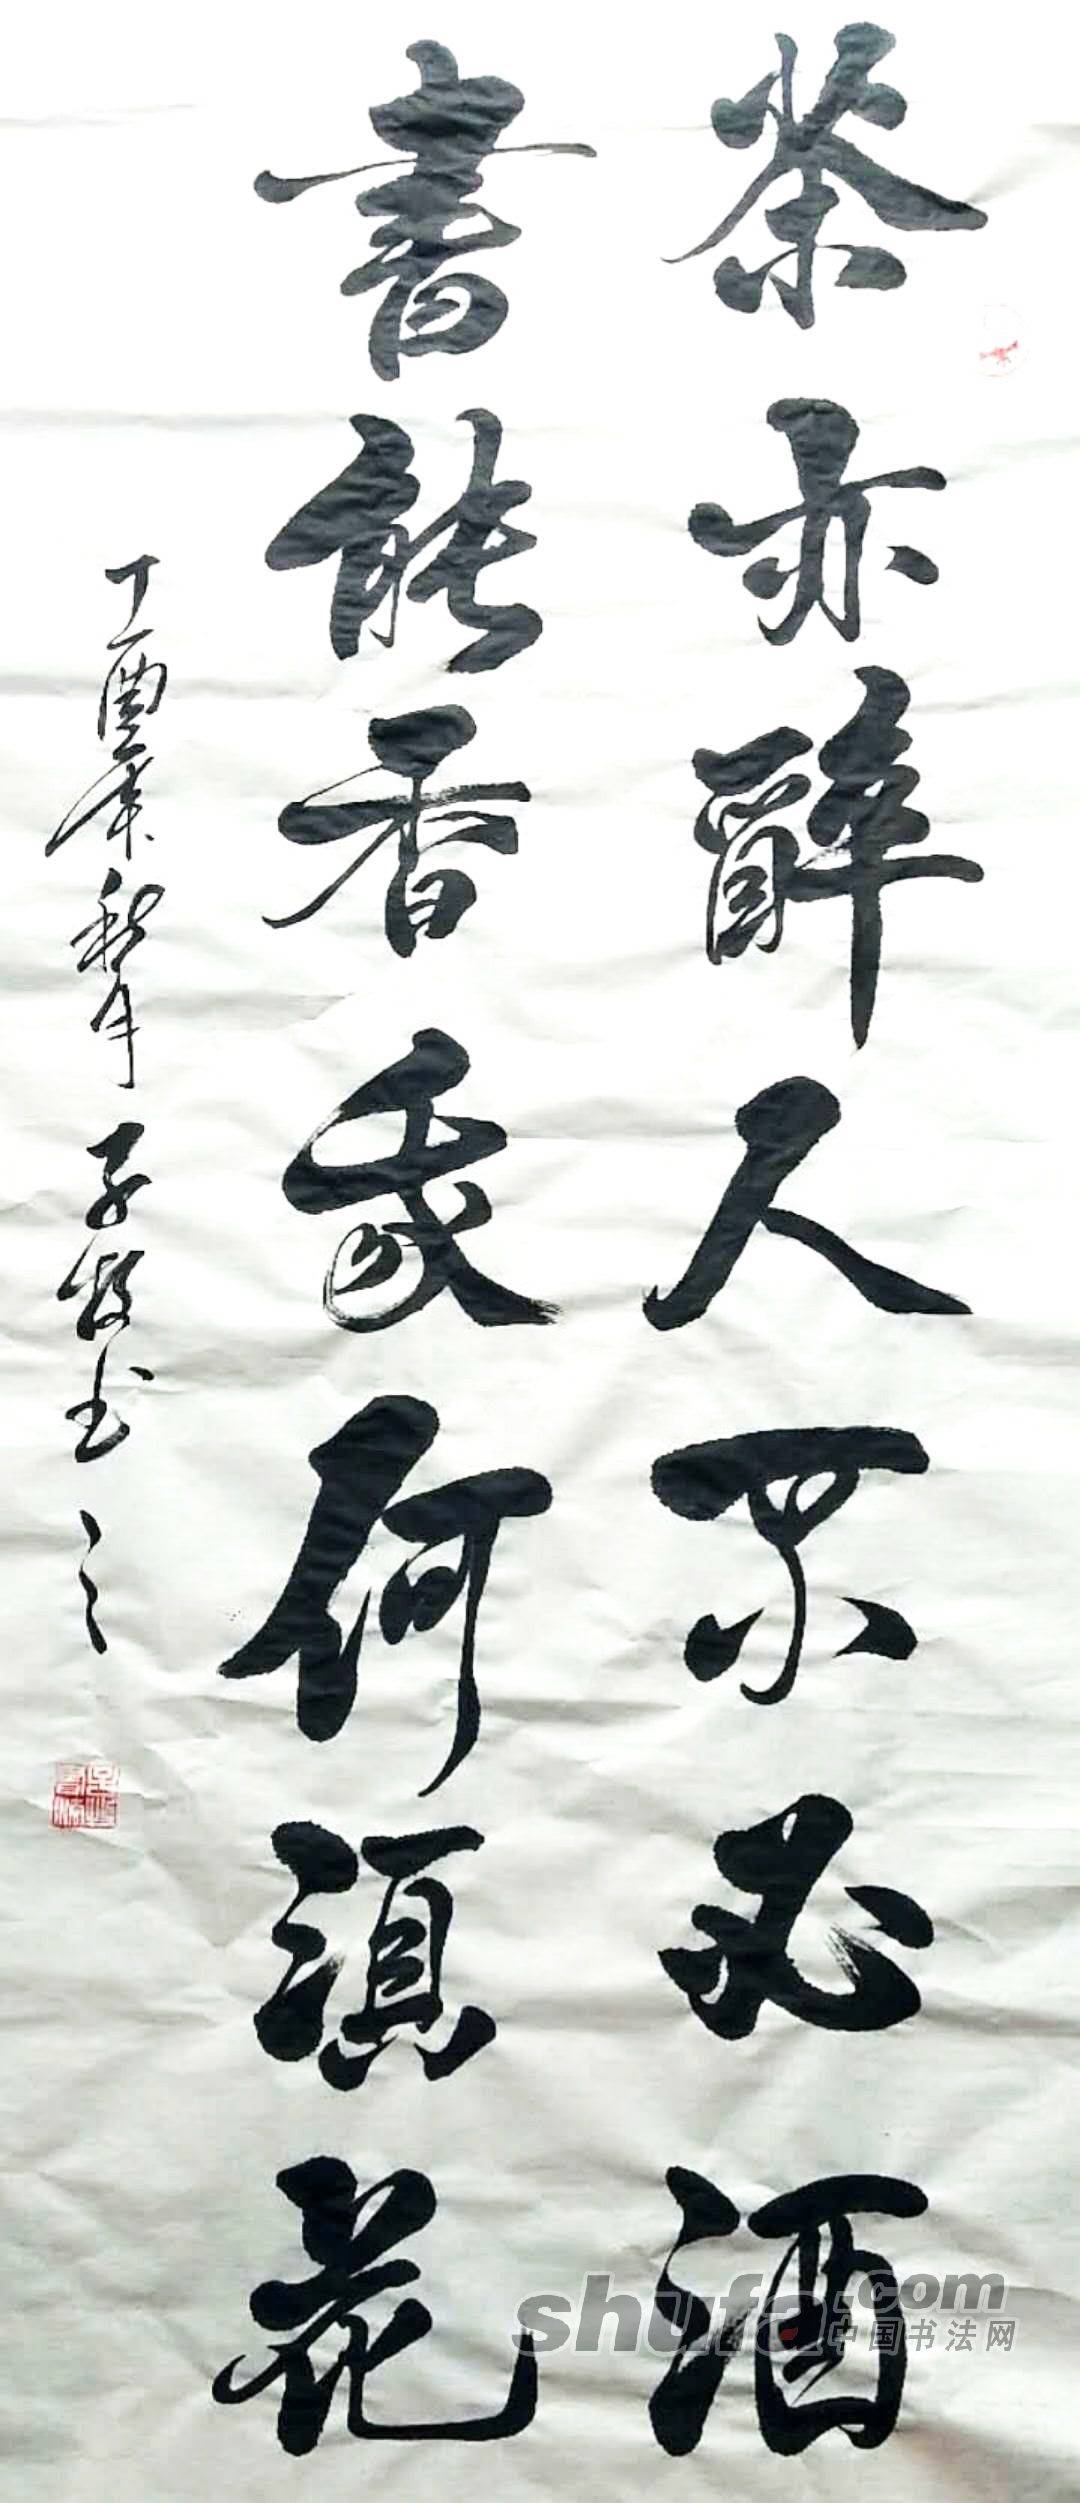 茶亦醉人不必酒
書能香我何須花
丁酉年秋月子牧书
shufa.com
中国书法网